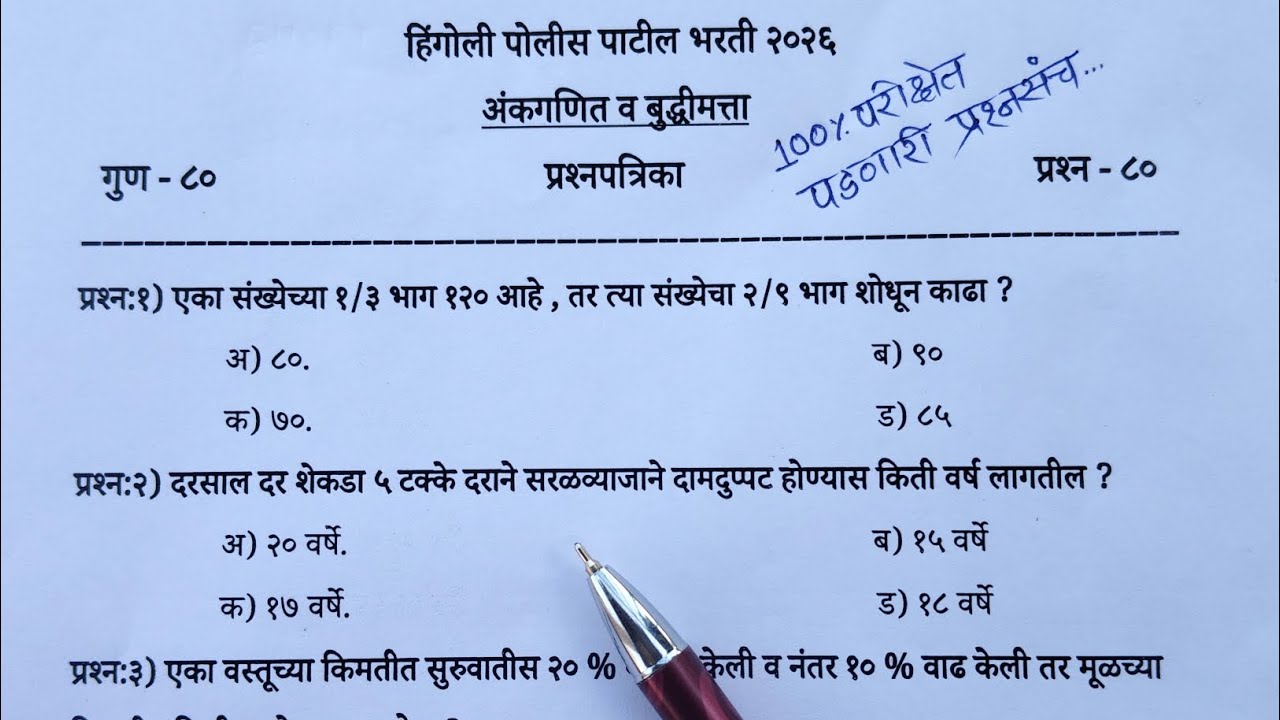 हिंगोली पोलीस पाटील भरती २०२६
अंकगणित व बुद्धीमत्ता
100% परीक्षेत
पडणारी प्रश्नसंच...
गुण - ८० प्रश्नपत्रिका प्रश्न - ८०
प्रश्न:१) एका संख्येच्या १/३ भाग १२० आहे , तर त्या संख्येचा २/९ भाग शोधून काढा ?
अ) ८०. ब) ९०
क) ७०. ड) ८५
प्रश्न:२) दरसाल दर शेकडा ५ टक्के दराने सरळव्याजाने दामदुप्पट होण्यास किती वर्ष लागतील ?
अ) २० वर्षे. ब) १५ वर्षे
क) १७ वर्षे. ड) १८ वर्षे
प्रश्न:३) एका वस्तूच्या किमतीत सुरुवातीस २० % केली व नंतर १० % वाढ केली तर मूळच्या